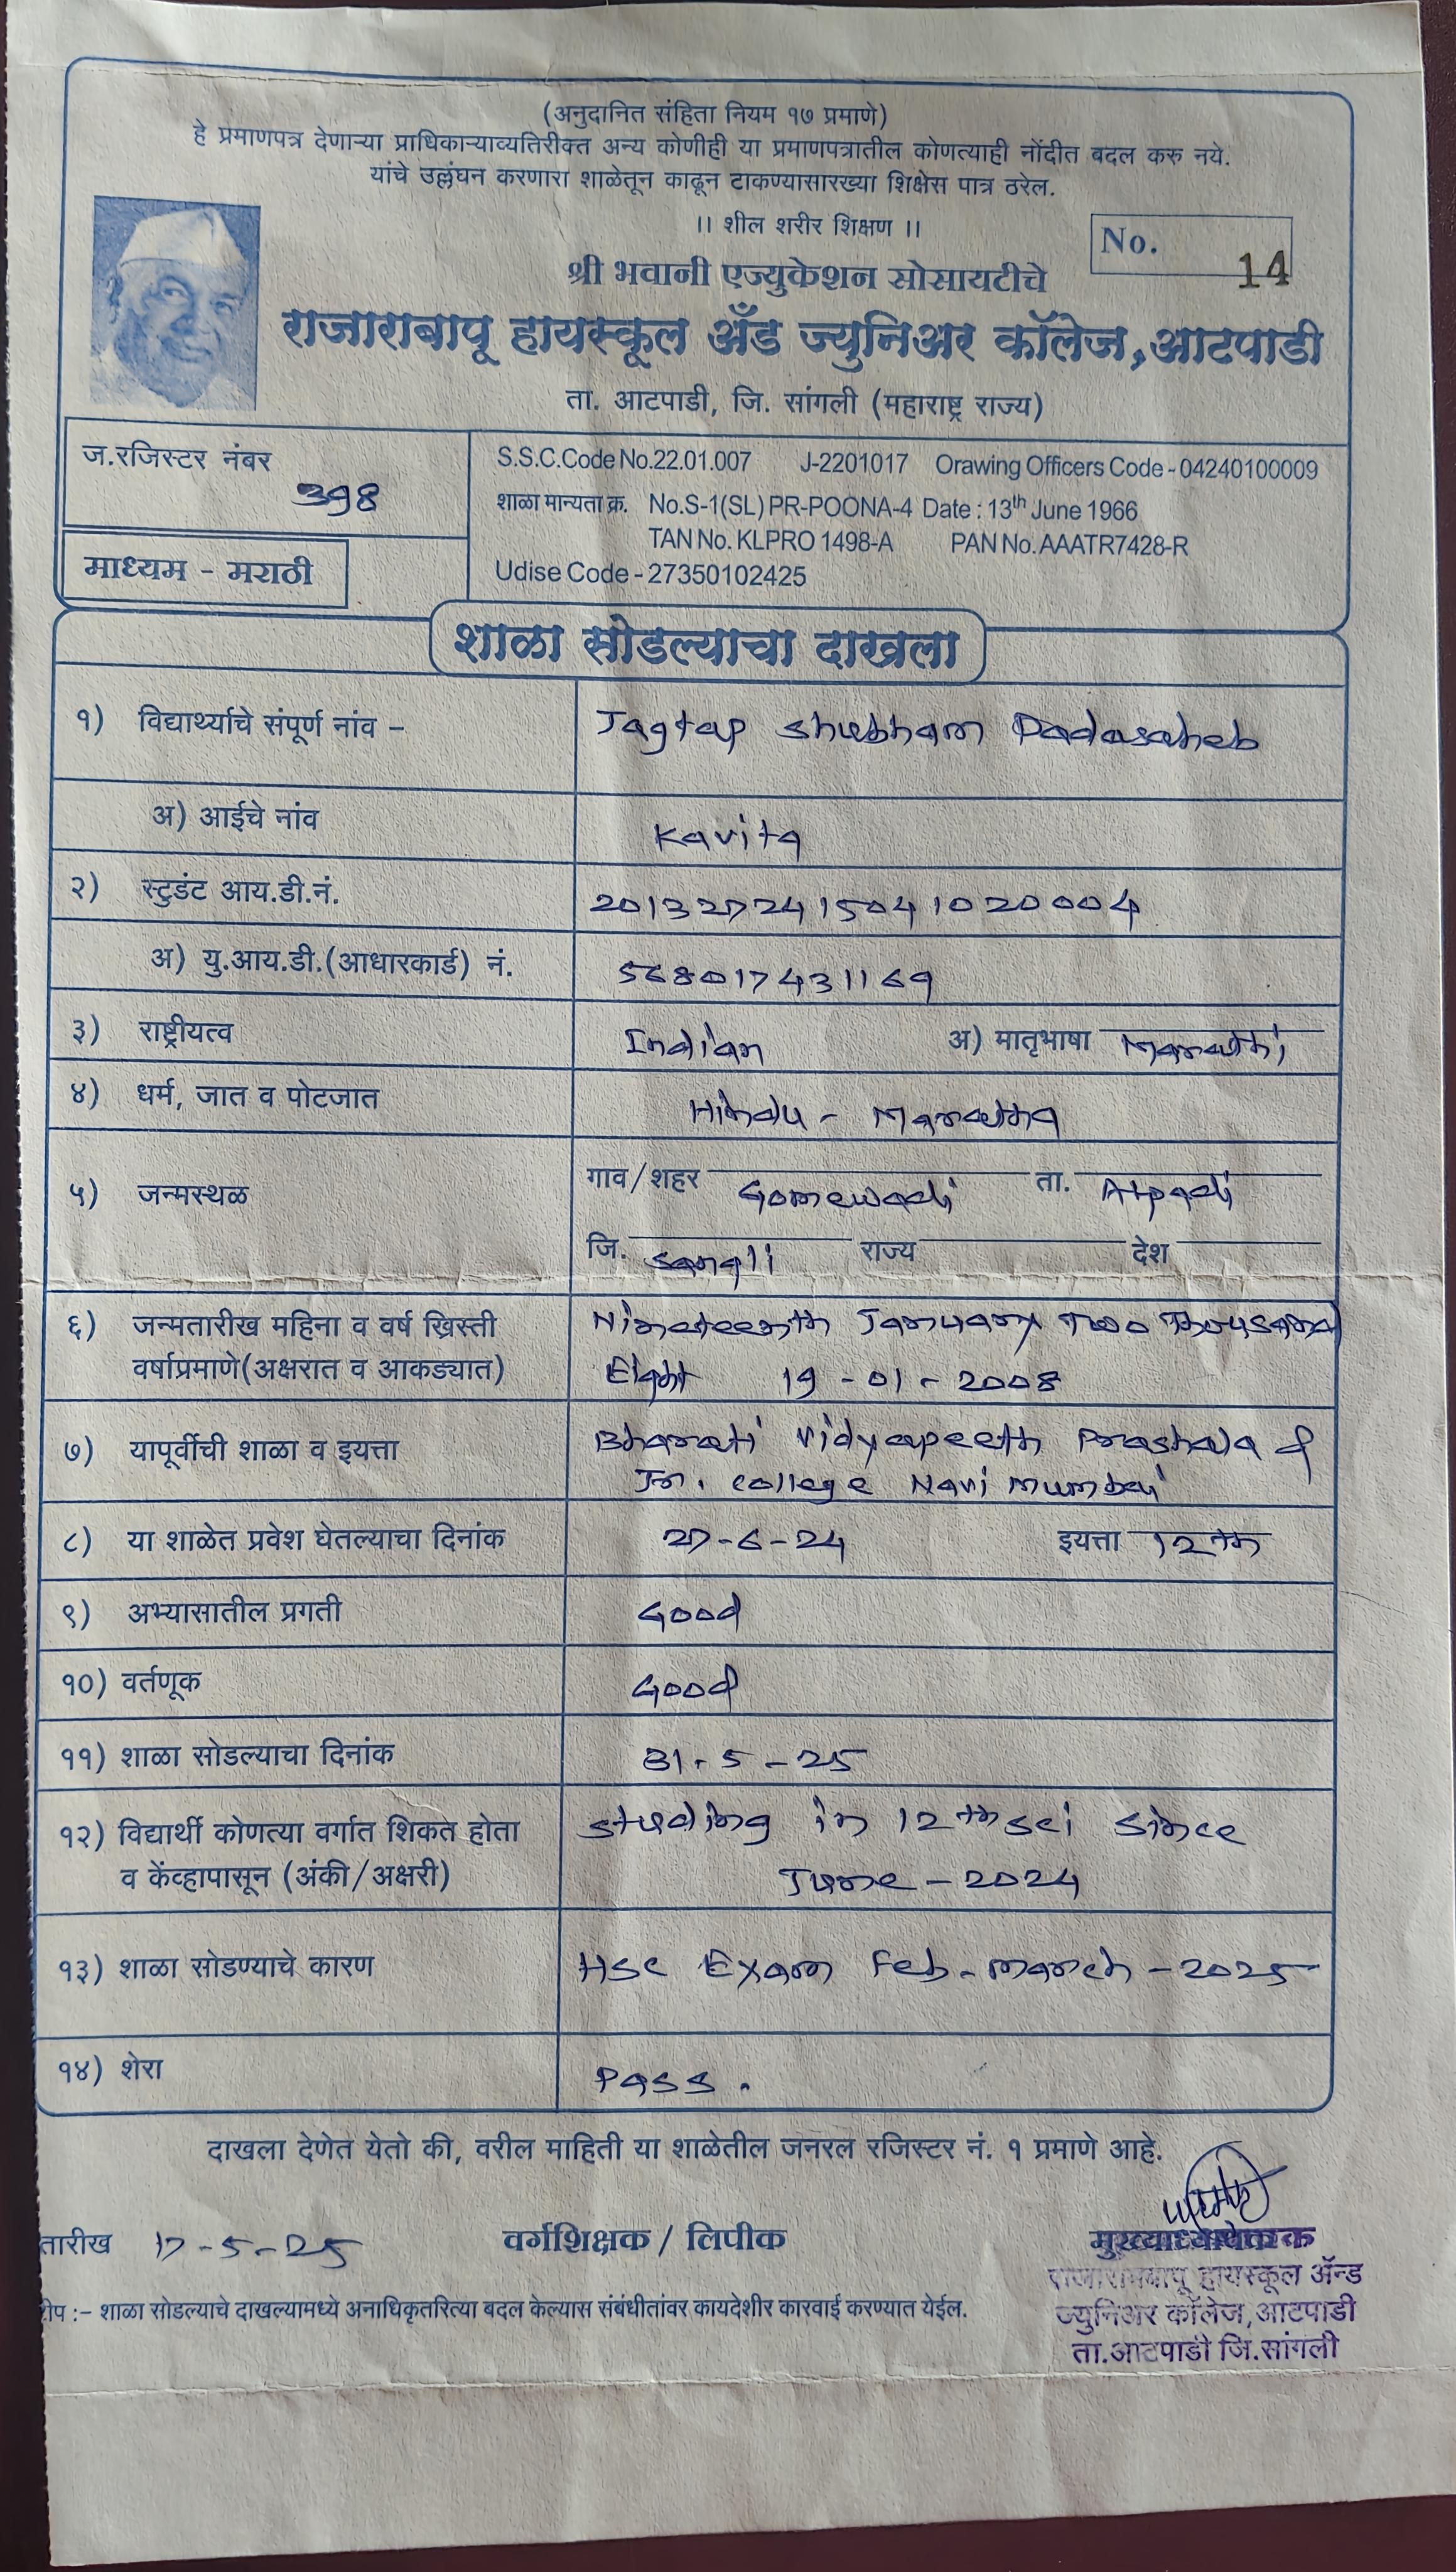 (अनुदानित संहिता नियम १७ प्रमाणे)
हे प्रमाणपत्र देणाऱ्या प्राधिकाऱ्याव्यतिरीक्त अन्य कोणीही या प्रमाणपत्रातील कोणत्याही नोंदीत बदल करु नये.
यांचे उल्लंघन करणारा शाळेतून काढून टाकण्यासारख्या शिक्षेस पात्र ठरेल.
।। शील शरीर शिक्षण ।।
No. 14
श्री भवानी एज्युकेशन सोसायटीचे
राजाराबापू हायस्कूल अँड ज्युनिअर कॉलेज,आटपाडी
ता. आटपाडी, जि. सांगली (महाराष्ट्र राज्य)
ज.रजिस्टर नंबर
398
माध्यम - मराठी
S.S.C.Code No.22.01.007 J-2201017 Orawing Officers Code - 04240100009
शाळा मान्यता क्र. No.S-1(SL) PR-POONA-4 Date : 13th June 1966
TAN No. KLPRO 1498-A PAN No. AAATR7428-R
Udise Code - 27350102425
शाळा सोडल्याचा दाखला
१) विद्यार्थ्याचे संपूर्ण नांव – Jagtap Shubham Dadasaheb
अ) आईचे नांव Kavita
२) स्टुडंट आय.डी.नं. 2013272415041020004
अ) यु.आय.डी.(आधारकार्ड) नं. 568017431169
३) राष्ट्रीयत्व Indian अ) मातृभाषा Marathi
४) धर्म, जात व पोटजात Hindu - Maratha
५) जन्मस्थळ गाव/शहर Gomewadi ता. Atpadi
जि. Sangli राज्य देश
६) जन्मतारीख महिना व वर्ष ख्रिस्ती Nineteenth January Two Thousand
वर्षाप्रमाणे(अक्षरात व आकड्यात) Eight 19-01-2008
७) यापूर्वीची शाळा व इयत्ता Bharati Vidyapeeth Prashala &
Jr. College Navi Mumbai
८) या शाळेत प्रवेश घेतल्याचा दिनांक 27-6-24 इयत्ता 12th
९) अभ्यासातील प्रगती Good
१०) वर्तणूक Good
११) शाळा सोडल्याचा दिनांक 31-5-25
१२) विद्यार्थी कोणत्या वर्गात शिकत होता studing in 12th sci since
व केंव्हापासून (अंकी/अक्षरी) June-2024
१३) शाळा सोडण्याचे कारण HSC Exam Feb-march-2025
१४) शेरा Pass.
दाखला देणेत येतो की, वरील माहिती या शाळेतील जनरल रजिस्टर नं. १ प्रमाणे आहे.
तारीख 17-5-25 वर्गशिक्षक / लिपीक मुख्याध्यापक
टीप :– शाळा सोडल्याचे दाखल्यामध्ये अनाधिकृतरित्या बदल केल्यास संबंधीतांवर कायदेशीर कारवाई करण्यात येईल.
राजारामबापू हायस्कूल ॲन्ड
ज्युनिअर कॉलेज,आटपाडी
ता.आटपाडी जि.सांगली